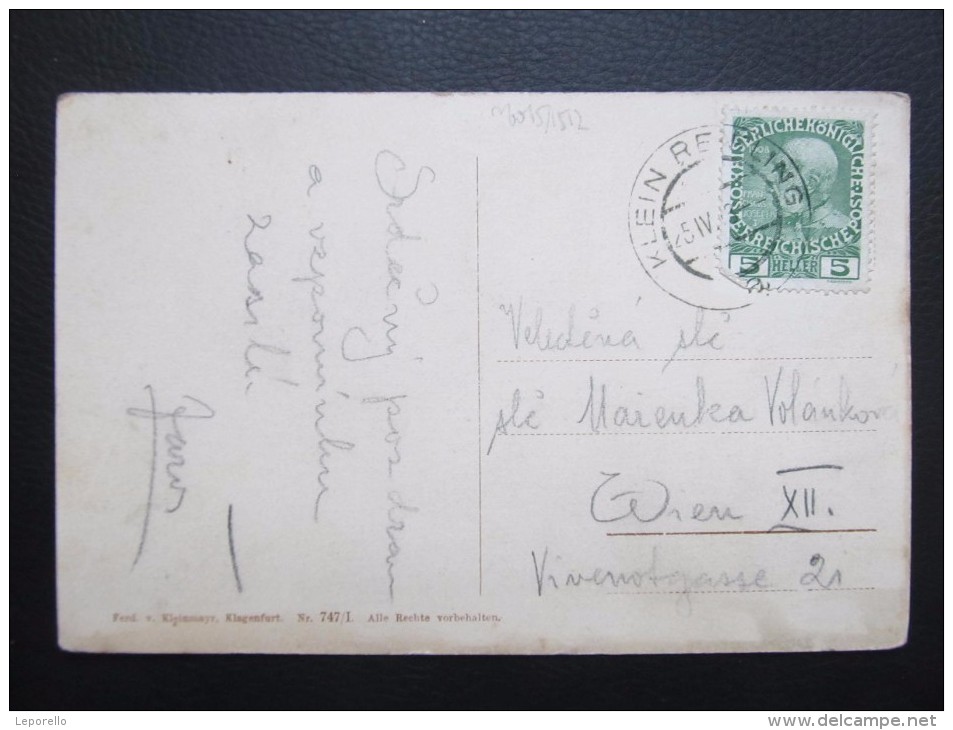 Srdečný pozdrav
a vzpomínku
zasílá
Jaro
KLEIN REIFLING
25 IV
1908
KAISERLICHE KÖNIGLICHE
ÖSTERREICHISCHE POST
5 HELLER 5
slč
slč Marenka Volánková
Wien XII.
Vivenotgasse 21
Ferd. v. Kleinmayr, Klagenfurt. Nr. 747/I. Alle Rechte vorbehalten.
Leporello
http://www.delcampe.net